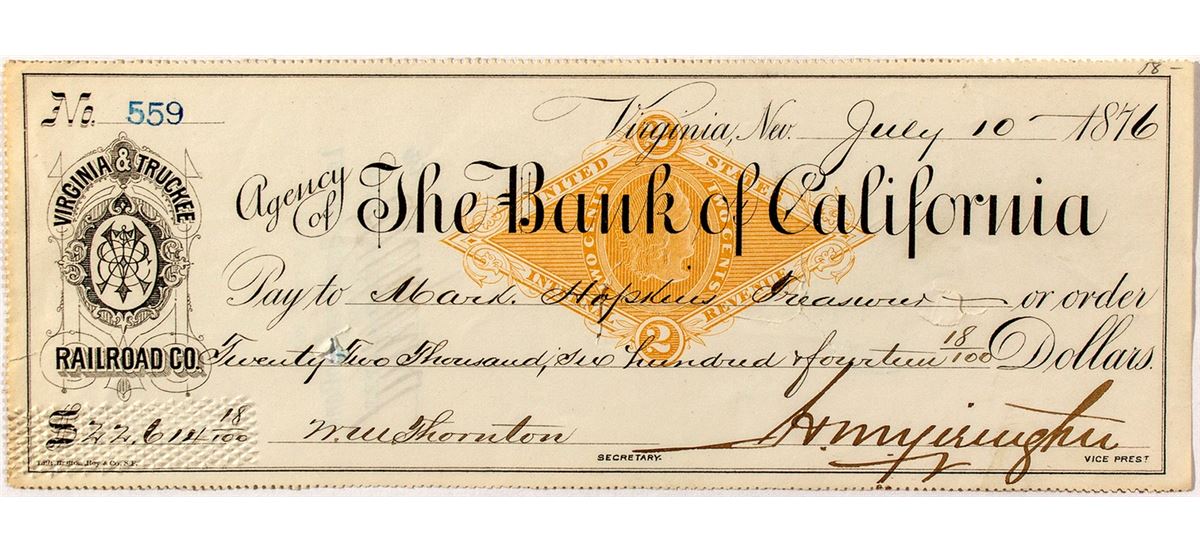 18 -
No. 559
Virginia, Nev. July 10 - 1876
VIRGINIA & TRUCKEE
RAILROAD CO.
Agency of The Bank of California
UNITED STATES
TWO CENTS TWO CENTS
INTER REVENUE
2
Pay to Mark Hopkins Treasurer or order
Twenty Two Thousand, Six hundred & fourteen 18/100 Dollars.
$ 22,614 18/100
W. M. Thornton
SECRETARY.
VICE PREST